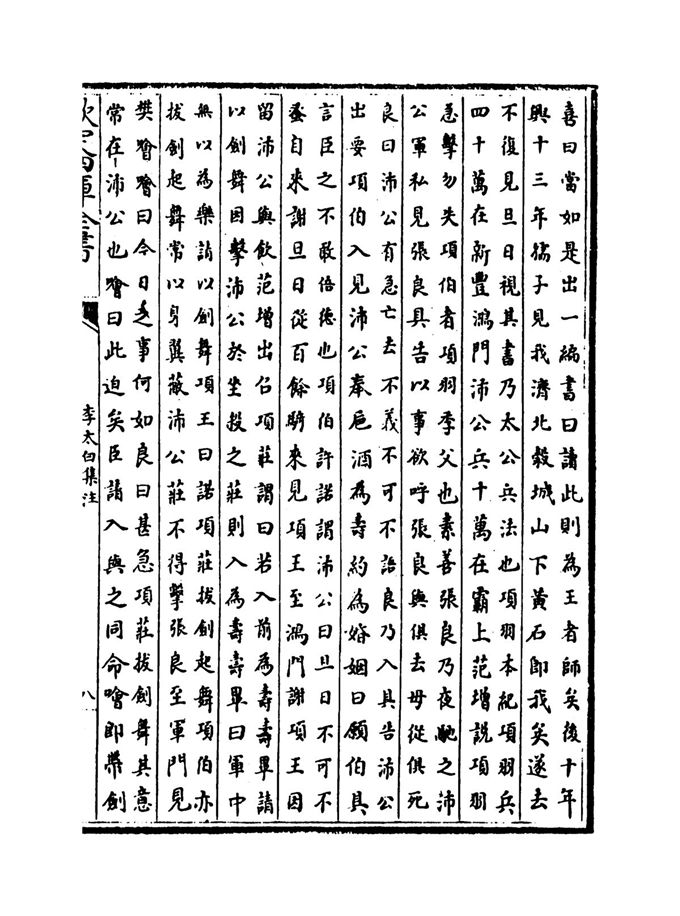 喜曰當如是出一編書曰讀此則為王者師矣後十年
興十三年孺子見我濟北穀城山下黄石即我矣遂去
不復見旦日視其書乃太公兵法也項羽本紀項羽兵
四十萬在新豐鴻門沛公兵十萬在霸上范增説項羽
急擊勿失項伯者項羽季父也素善張良乃夜馳之沛
公軍私見張良具告以事欲呼張良與俱去毋從俱死
良曰沛公有急亡去不義不可不語良乃入具告沛公
出要項伯入見沛公奉巵酒為壽約為婚姻曰願伯具
言臣之不敢倍徳也項伯許諾謂沛公曰旦日不可不
蚤自來謝旦日從百餘騎來見項王至鴻門謝項王因
留沛公與飲范增出召項莊謂曰若入前為壽壽畢請
以劍舞因擊沛公於坐殺之莊則入為壽壽畢曰軍中
無以為樂請以劍舞項王曰諾項莊拔劍起舞項伯亦
拔劍起舞常以身翼蔽沛公莊不得擊張良至軍門見
樊噲噲曰今日之事何如良曰甚急項莊拔劍舞其意
常在沛公也噲曰此迫矣臣請入與之同命噲即帶劍
欽定四庫全書
李太白集注
八